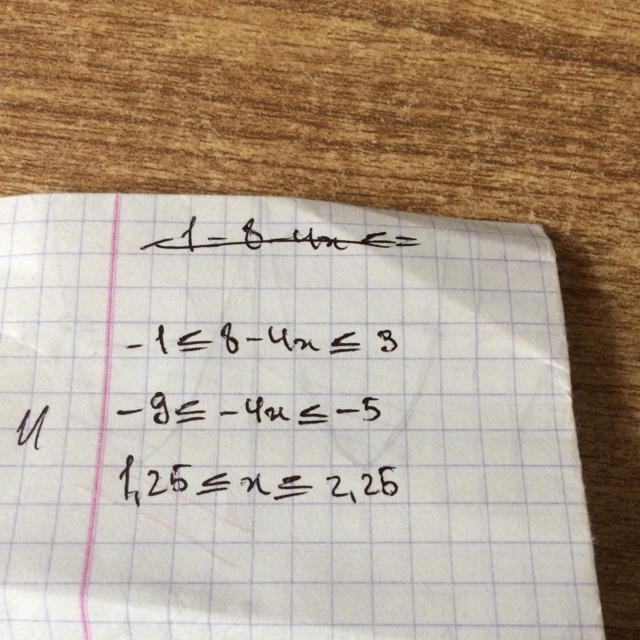 1 = 8 - 4x <=
-1 ≤ 8-4x ≤ 3
-9 ≤ -4x ≤ -5
1,25 ≤ x ≤ 2,25
И